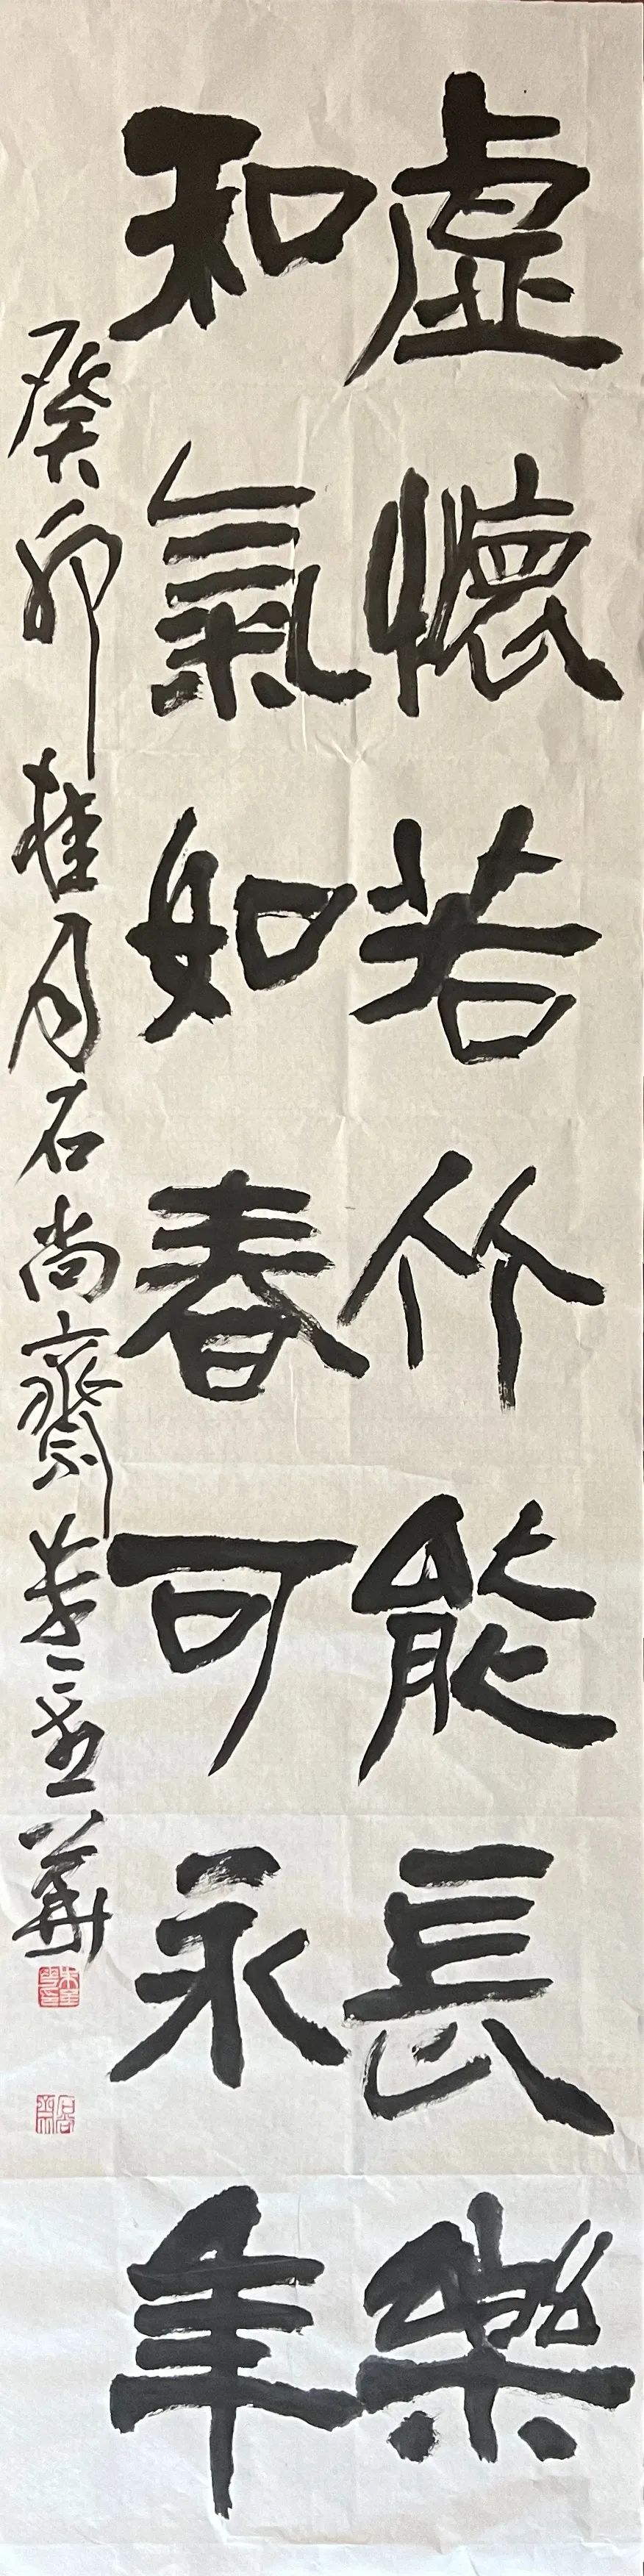 虛懷若竹能長樂
和氣如春可永年
癸卯桂月石尚齋